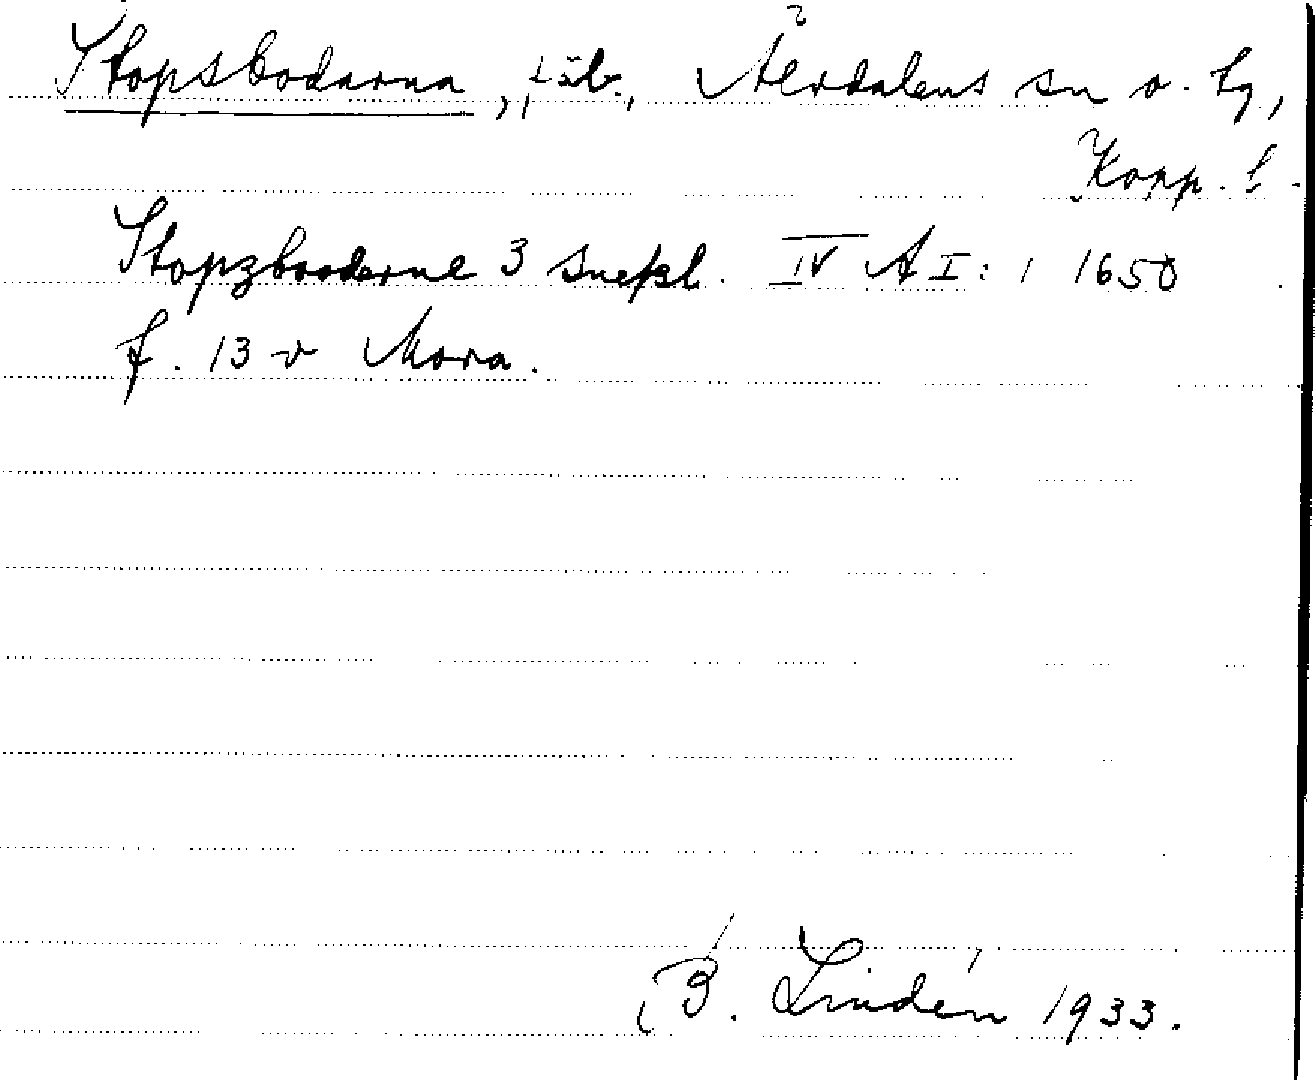 Stopsbodarna, fäb., Älvdalens sn o. tg,
Kopp. l.
Stopzbooderne 3 snepl. IV A I: 1 1650
f. 13 v Mora.
B. Lindén 1933.